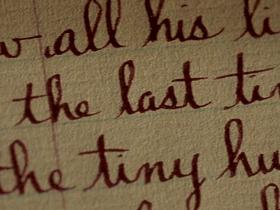 all his li
the last ti
the tiny hu